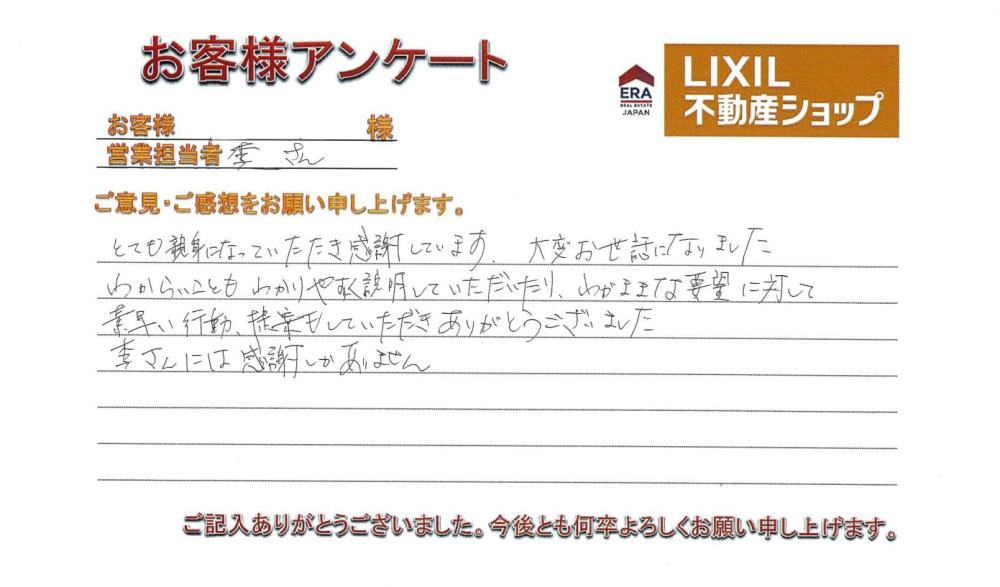 お客様アンケート
ERA
REAL ESTATE
JAPAN
LIXIL
不動産ショップ
お客様 様
営業担当者 李 さん
ご意見・ご感想をお願い申し上げます。
とても親身になっていただき感謝しています。大変お世話になりました
わからいこともわかりやすく説明していただいたり、わがままな要望に対して
素早い行動、提案もしていただきありがとうございました
李さんには感謝しかありません
ご記入ありがとうございました。今後とも何卒よろしくお願い申し上げます。